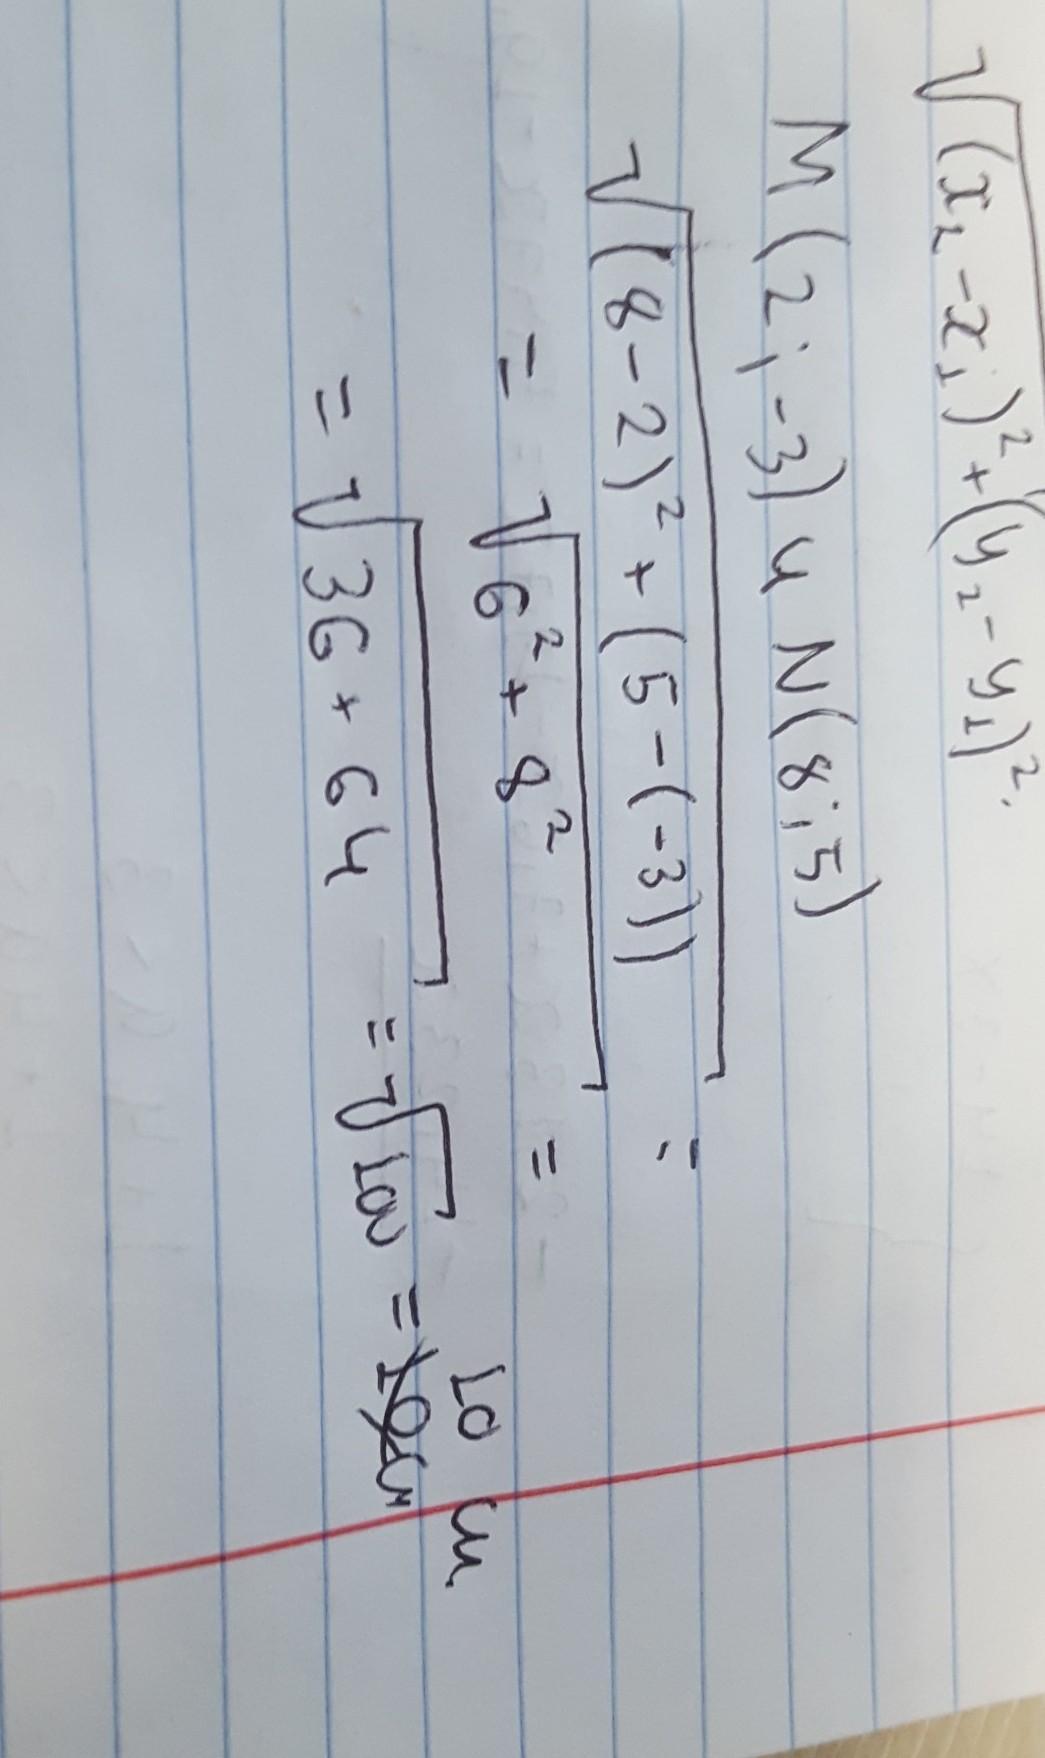 √(x₂-x₁)²+(y₂-y₁)².
M(2;-3) и N(8;5)
√(8-2)²+(5-(-3)) =
= √6²+8² =
= √36+64 = √100 = 10 см